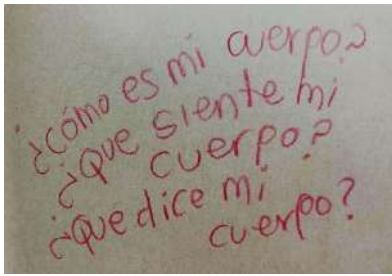 ¿cómo es mi cuerpo?
¿Que siente mi
cuerpo?
¿que dice mi
cuerpo?